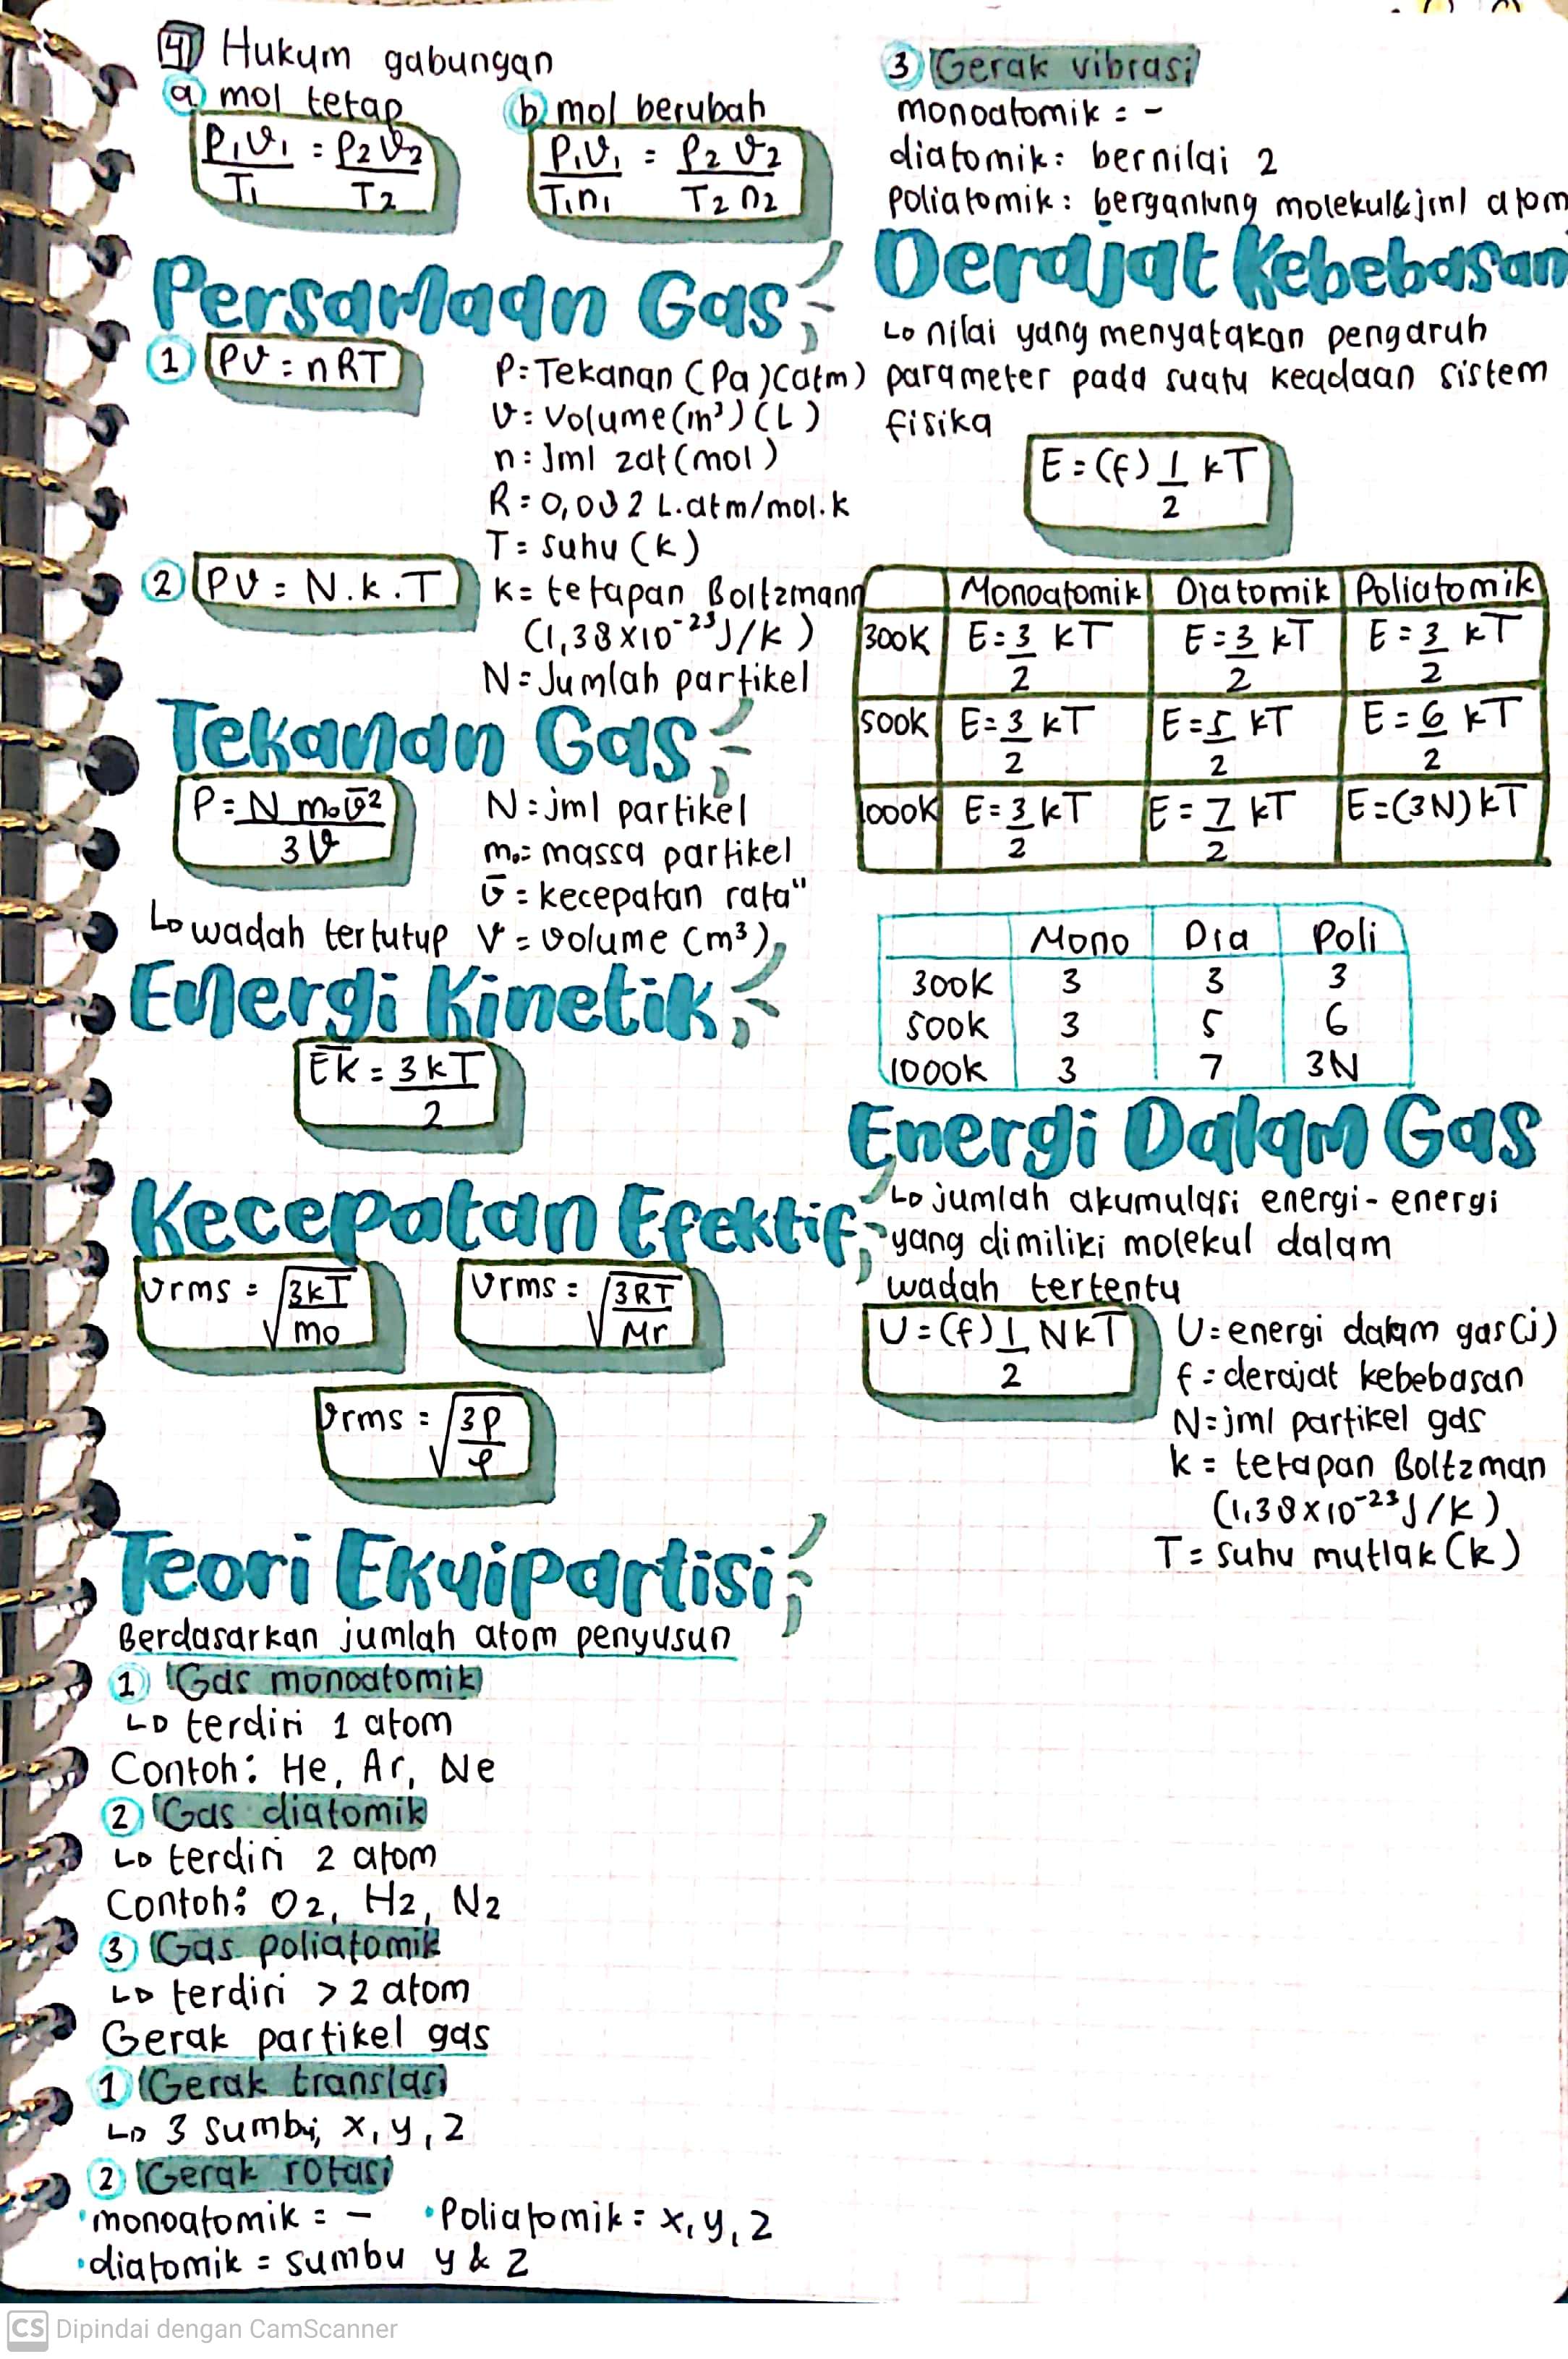 4 Hukum gabungan
a mol tetap
P₁V₁/T₁ = P₂V₂/T₂
b mol berubah
P₁V₁/T₁n₁ = P₂V₂/T₂n₂
Persamaan Gas
1 PV = nRT
P = Tekanan (Pa)(atm)
V = Volume (m³) (L)
n = Jml zat (mol)
R = 0,082 L.atm/mol.k
T = suhu (k)
2 PV = N.k.T
k = tetapan Boltzmann
(1,38x10⁻²³ J/k)
N = Jumlah partikel
Tekanan Gas
P = N m₀ v̄²/3V
N = jml partikel
m₀ = massa partikel
v̄ = kecepatan rata"
↳ wadah tertutup
V = volume (m³)
Energi Kinetik
E̅k̅ = 3kT/2
Kecepatan Efektif
Vrms = √3kT/mo
Vrms = √3RT/Mr
Vrms = √3P/ρ
Teori Ekuipartisi
Berdasarkan jumlah atom penyusun
1 Gas monoatomik
↳ terdiri 1 atom
Contoh: He, Ar, Ne
2 Gas diatomik
↳ terdiri 2 atom
Contoh: O2, H2, N2
3 Gas poliatomik
↳ terdiri > 2 atom
Gerak partikel gas
1 Gerak translasi
↳ 3 sumbu; x, y, z
2 Gerak rotasi
• monoatomik = -
• Poliatomik = x, y, z
• diatomik = sumbu y & z
3 Gerak vibrasi
monoatomik = -
diatomik: bernilai 2
poliatomik: bergantung molekul & jml atom
Derajat Kebebasan
↳ nilai yang menyatakan pengaruh
parameter pada suatu keadaan sistem
fisika
E = (f) 1/2 kT
Monoatomik Diatomik Poliatomik
300K E = 3/2 kT E = 3/2 kT E = 3/2 kT
500K E = 3/2 kT E = 5/2 kT E = 6/2 kT
1000K E = 3/2 kT E = 7/2 kT E = (3N) kT
Mono Dia Poli
300K 3 3 3
500K 3 5 6
1000K 3 7 3N
Energi Dalam Gas
↳ jumlah akumulasi energi-energi
yang dimiliki molekul dalam
wadah tertentu
U = (f) 1/2 NkT
U = energi dalam gas (j)
f = derajat kebebasan
N = jml partikel gas
k = tetapan Boltzman
(1,38x10⁻²³ J/k)
T = suhu mutlak (k)
CS Dipindai dengan CamScanner